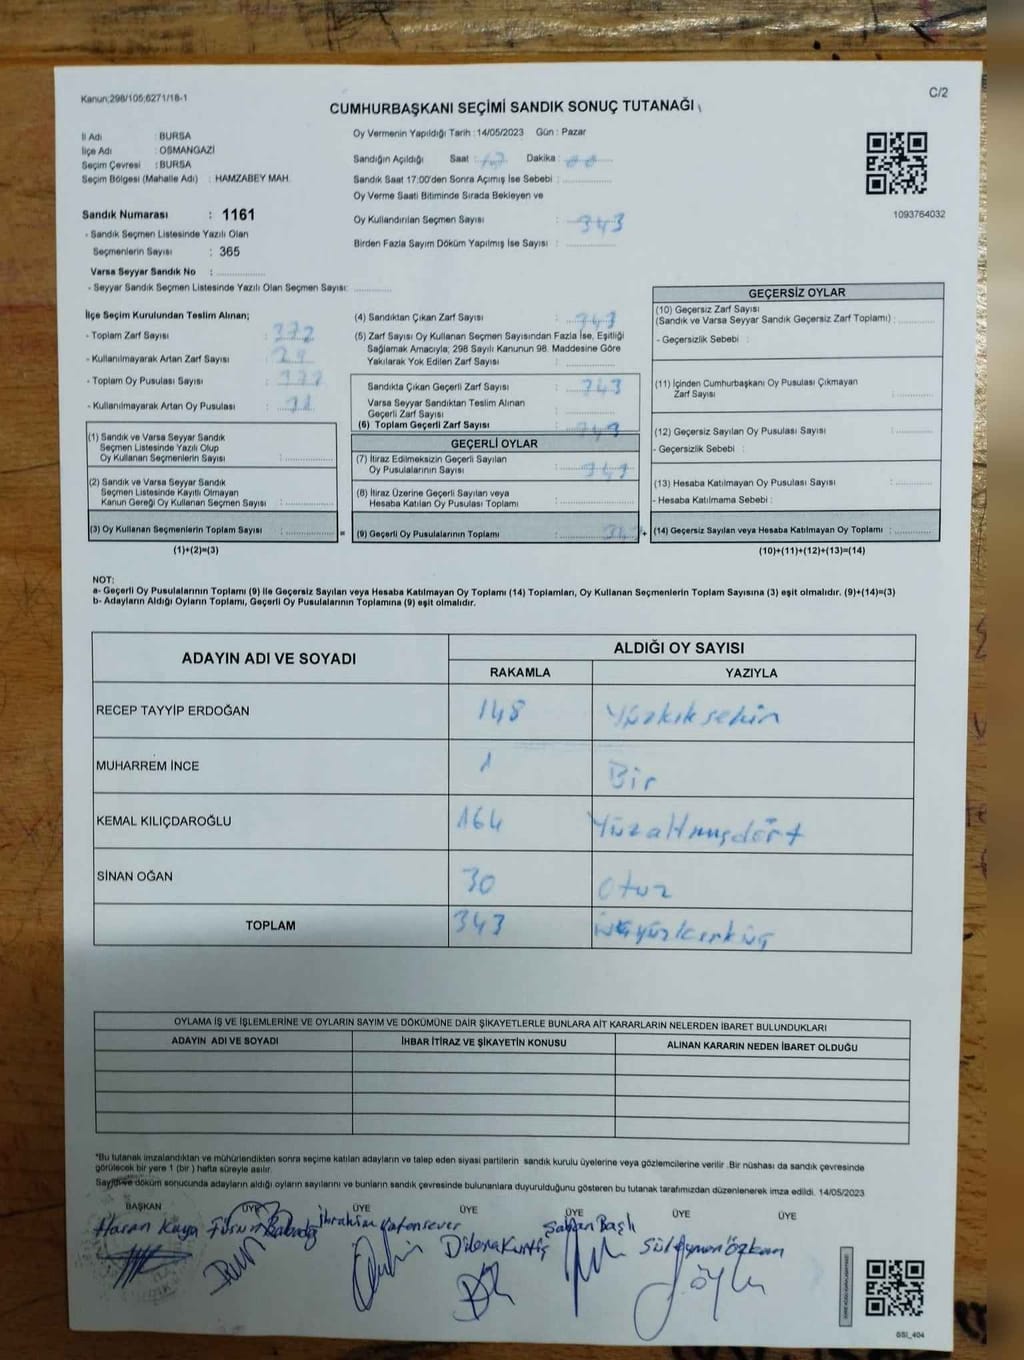 Kanun;298/105;6271/18-1
C/2
CUMHURBAŞKANI SEÇİMİ SANDIK SONUÇ TUTANAĞI
İl Adı : BURSA
İlçe Adı : OSMANGAZİ
Seçim Çevresi : BURSA
Seçim Bölgesi (Mahalle Adı) : HAMZABEY MAH.
Sandık Numarası : 1161
- Sandık Seçmen Listesinde Yazılı Olan
Seçmenlerin Sayısı : 365
Varsa Seyyar Sandık No :
- Seyyar Sandık Seçmen Listesinde Yazılı Olan Seçmen Sayısı:
Oy Vermenin Yapıldığı Tarih : 14/05/2023 Gün : Pazar
Sandığın Açıldığı Saat : 17 Dakika : 00
Sandık Saat 17:00'den Sonra Açılmış İse Sebebi :
Oy Verme Saati Bitiminde Sırada Bekleyen ve
Oy Kullandırılan Seçmen Sayısı : 343
Birden Fazla Sayım Döküm Yapılmış İse Sayısı :
1093764032
İlçe Seçim Kurulundan Teslim Alınan;
- Toplam Zarf Sayısı : 372
- Kullanılmayarak Artan Zarf Sayısı : 29
- Toplam Oy Pusulası Sayısı :
- Kullanılmayarak Artan Oy Pusulası :
(1) Sandık ve Varsa Seyyar Sandık
Seçmen Listesinde Yazılı Olup
Oy Kullanan Seçmenlerin Sayısı :
(2) Sandık ve Varsa Seyyar Sandık
Seçmen Listesinde Kayıtlı Olmayan
Kanun Gereği Oy Kullanan Seçmen Sayısı :
(3) Oy Kullanan Seçmenlerin Toplam Sayısı :
(1)+(2)=(3)
=
(4) Sandıktan Çıkan Zarf Sayısı : 343
(5) Zarf Sayısı Oy Kullanan Seçmen Sayısından Fazla İse, Eşitliği
Sağlamak Amacıyla; 298 Sayılı Kanunun 98. Maddesine Göre
Yakılarak Yok Edilen Zarf Sayısı :
Sandıkta Çıkan Geçerli Zarf Sayısı : 343
Varsa Seyyar Sandıktan Teslim Alınan
Geçerli Zarf Sayısı :
(6) Toplam Geçerli Zarf Sayısı : 343
GEÇERLİ OYLAR
(7) İtiraz Edilmeksizin Geçerli Sayılan
Oy Pusulalarının Sayısı : 343
(8) İtiraz Üzerine Geçerli Sayılan veya
Hesaba Katılan Oy Pusulası Toplamı :
(9) Geçerli Oy Pusulalarının Toplamı :
+
GEÇERSİZ OYLAR
(10) Geçersiz Zarf Sayısı
(Sandık ve Varsa Seyyar Sandık Geçersiz Zarf Toplamı) :
- Geçersizlik Sebebi :
(11) İçinden Cumhurbaşkanı Oy Pusulası Çıkmayan
Zarf Sayısı :
(12) Geçersiz Sayılan Oy Pusulası Sayısı :
- Geçersizlik Sebebi :
(13) Hesaba Katılmayan Oy Pusulası Sayısı :
- Hesaba Katılmama Sebebi :
(14) Geçersiz Sayılan veya Hesaba Katılmayan Oy Toplamı :
(10)+(11)+(12)+(13)=(14)
NOT:
a- Geçerli Oy Pusulalarının Toplamı (9) ile Geçersiz Sayılan veya Hesaba Katılmayan Oy Toplamı (14) Toplamları, Oy Kullanan Seçmenlerin Toplam Sayısına (3) eşit olmalıdır. (9)+(14)=(3)
b- Adayların Aldığı Oyların Toplamı, Geçerli Oy Pusulalarının Toplamına (9) eşit olmalıdır.
ADAYIN ADI VE SOYADI
ALDIĞI OY SAYISI
RAKAMLA YAZIYLA
RECEP TAYYİP ERDOĞAN 148 Yüzkıksekin
MUHARREM İNCE 1 Bir
KEMAL KILIÇDAROĞLU 164 Yüzaltmışdört
SİNAN OĞAN 30 Otuz
TOPLAM 343 üçyüzkırküç
OYLAMA İŞ VE İŞLEMLERİNE VE OYLARIN SAYIM VE DÖKÜMÜNE DAİR ŞİKAYETLERLE BUNLARA AİT KARARLARIN NELERDEN İBARET BULUNDUKLARI
ADAYIN ADI VE SOYADI İHBAR İTİRAZ VE ŞİKAYETİN KONUSU ALINAN KARARIN NEDEN İBARET OLDUĞU
*Bu tutanak imzalandıktan ve mühürlendikten sonra seçime katılan adayların ve talep eden siyasi partilerin sandık kurulu üyelerine veya gözlemcilerine verilir. Bir nüshası da sandık çevresinde
görülecek bir yere 1 (bir ) hafta süreyle asılır.
Sayım ve döküm sonucunda adayların aldığı oyların sayılarını ve bunların sandık çevresinde bulunanlara duyurulduğunu gösteren bu tutanak tarafımızdan düzenlenerek imza edildi. 14/05/2023
BAŞKAN ÜYE ÜYE ÜYE ÜYE ÜYE ÜYE
Hasan Kaya Füsun İbrahim Katonsever Dilara Kurtiş Şaban Başlı Süleyman Özkan
SSI_404